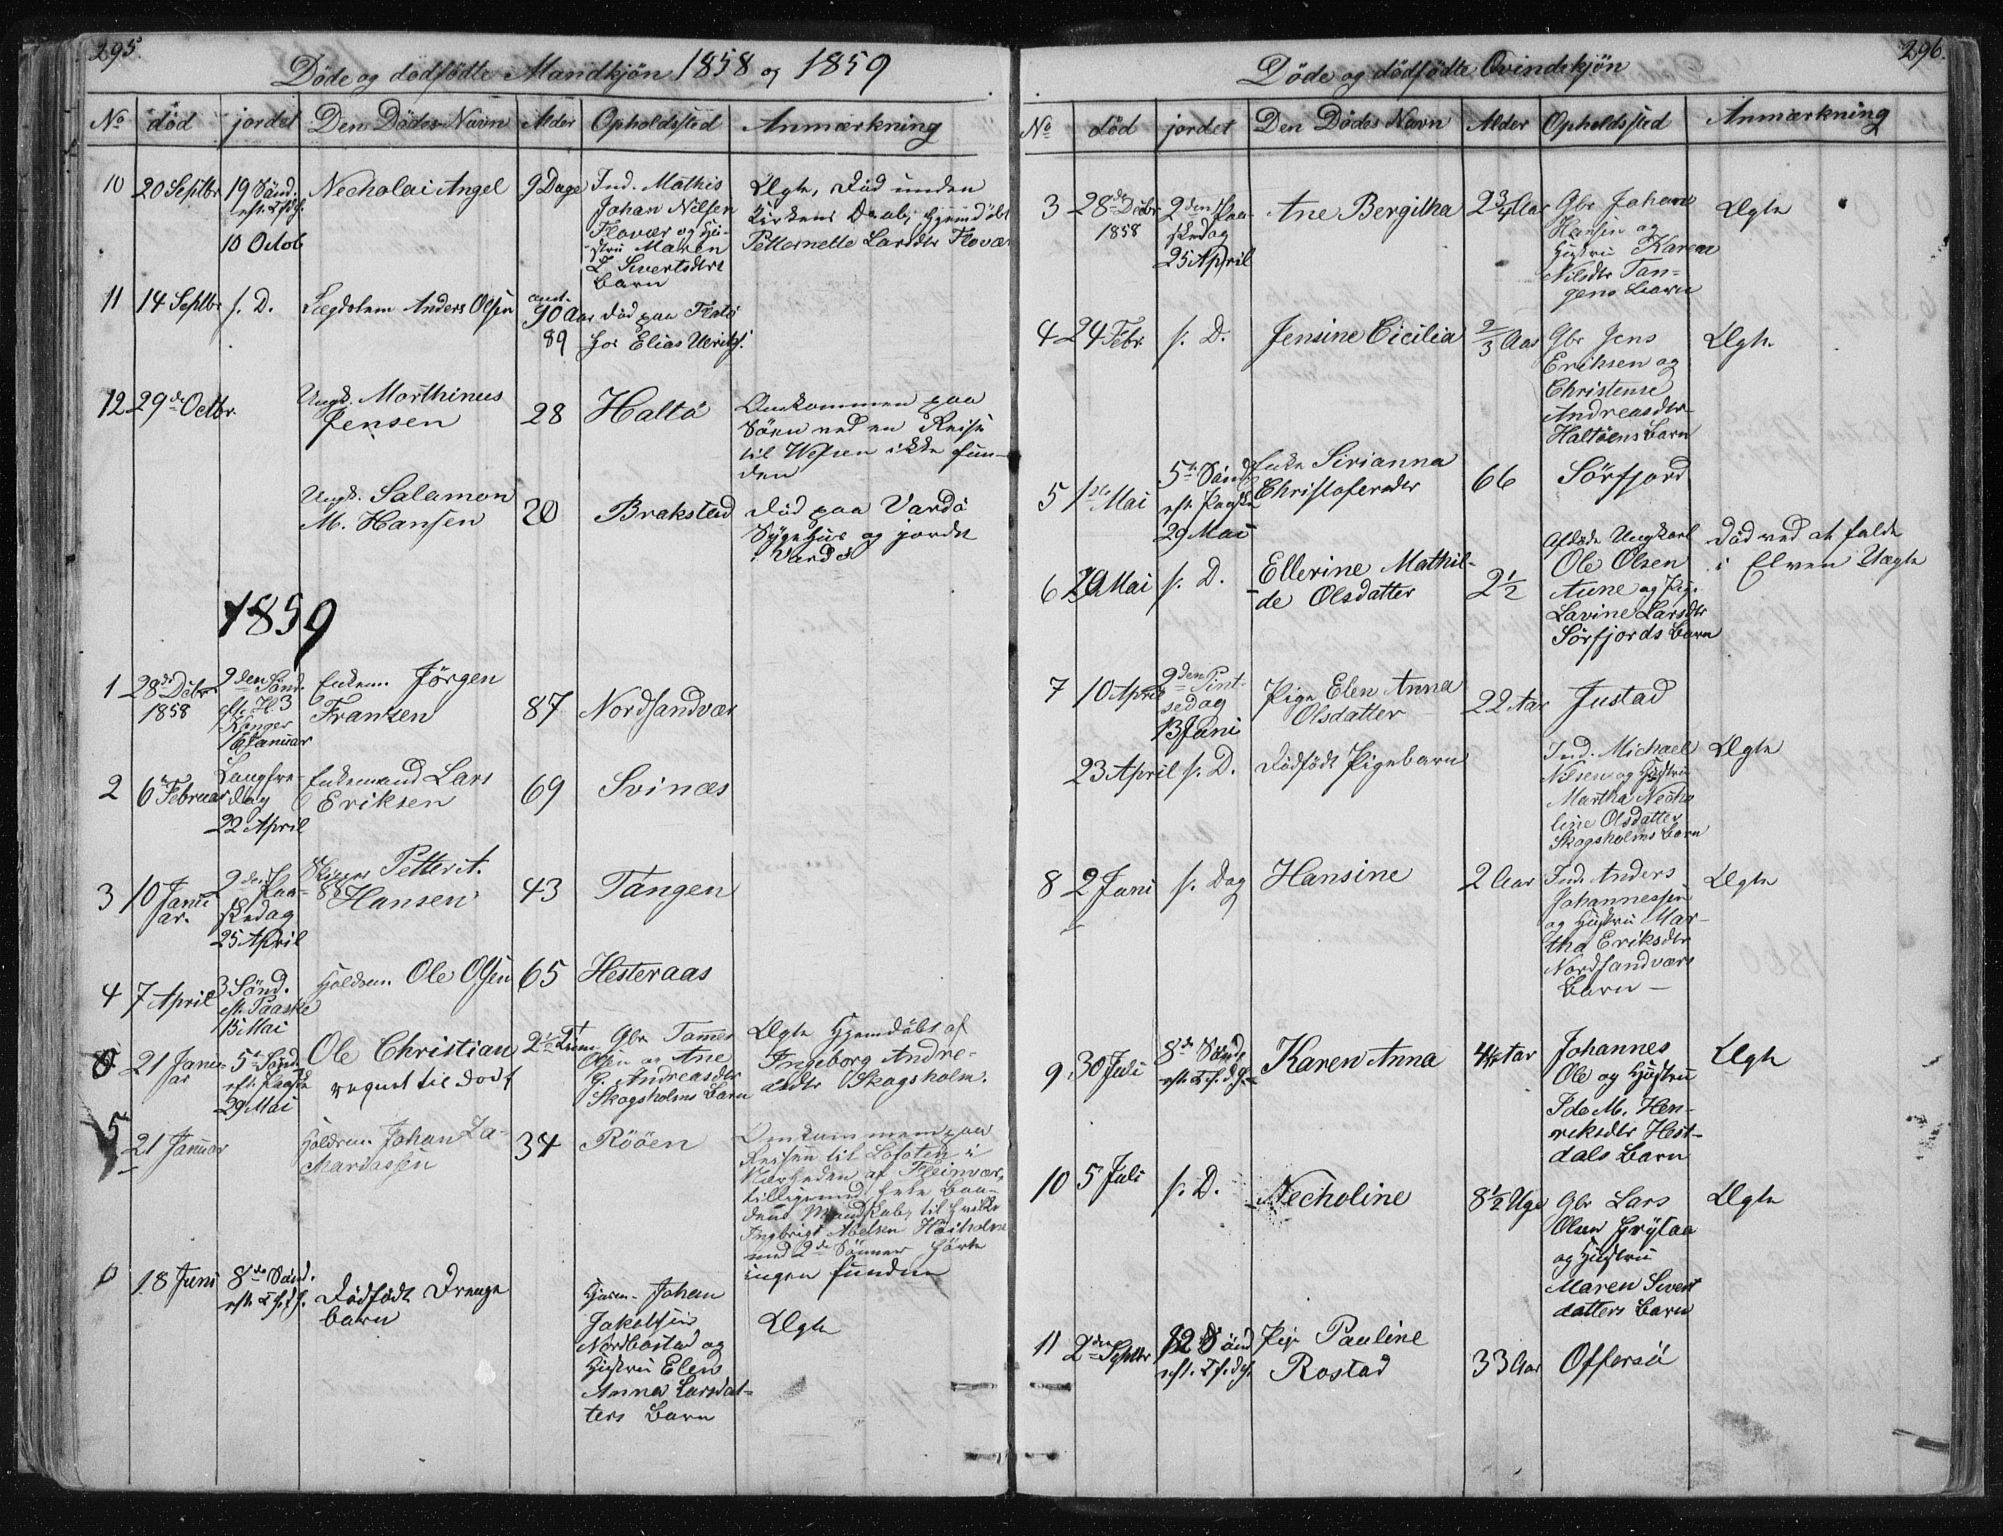 295.
Döde og dødfödte Mandkjön 1858 og 1859
No död jordet Den Dödes Navn Alder Opholdssted Anmærkning
10 20 Septbr 19 Sönd.
eft. Tfdgf.
10 Octob
Necholai Angel
9 Dage
Ind. Mathis
Johan Nilsen
Flovær og Hu-
stru Maren
L. Sivertsdtrs
Barn
Uegte, Död inden
Kirkens Daab, hjemdöbt
Petternelle Larsdtr Flovær
11 14 Septbr s. D.
Lægdslem Anders Olsen
90 Aar
89
död paa Flatö
hos Elias Ulriks.
12 29de Octbr.
Ungk. Morthinus
Jensen
28
Haltö
Omkommen paa
Söen ved en Reise
til Wefsen ikke fun-
den
Ungk. Salamon
M. Hansen
20
Brakstad
död paa Vardö
Sygehus og jordet
i Vardö
1859
1 28de Debr.
1858
2den Sönd.
eft. H 3
Konger
16 Januar
Enkem. Jörgen
Franzen
87
Nordsandvær
2 6 Februar
Langfre-
dag
22 April
Enkemand Lars
Eriksen
69
Svinæs
3 10 Janu
ar.
2den Paa-
skedag
25 April
Petter A.
Hansen
43
Tangen
4 7 April
3 Sönd.
eft. Paaske
15 Mai
Ole Olsen
65
Hesteraas
21 Janu-
ar
5te Sönd.
eft. Paaske
29 Mai
Ole Christian
regnet til Dödf
2½ Time
Gbr Tommes
Olsen og Ane
G. Andreasdtr
Skogsholms Barn
Uegte Hjemdöbt af
Ingeborg Andre-
asdtr Skogsholm.
5
21 Januar
Johan Za-
kariassen
34
Rööen
Omkommen paa
Reisen til Lofoten i
Nærheden af Fleinvær,
tilligemed hele Baa-
dens Mandskab, til hvilke
Ingbrigt Nielsen Höiholm
med 2de Sönner hörte
ingen funden
18 Juni
8de Sönd.
eft. Tf.df.
Dödfödt Drenge
barn
Johan
Jakobsen
Nordbostad og
Hustru Elen
Anna Larsdat-
ters Barn
Uegte
296.
Döde og dödfödte Qvindekjön
No död jordet Den Dödes Navn Alder Opholdssted Anmærkning
3 28de Debr
1858
2den Paa-
skedag
25 April
Ane Bergitha
2¾ Aar
Gbr Johan
Hansen og
Hustru Karen
Nilsdtr Tan-
gens Barn
Uegte
4 24 Febr. s. D.
Jensine Cicilia
2/3 Aar
Gbr Jens
Eriksen og
Christense
Andreasdtr
Haltöens Barn
Uegte
5 1ste Mai
5te Sönd
eft. Paaske
29 Mai
Enke Sirianna
Christofersdtr
66
Sörfjord
6 20 Mai s. D.
Ellerine Mathil-
de Olsdatter
2½
Afdöde Ungkarl
Ole Olsen
Aune og Pig.
Lavine Larsdtr
Sörfjords Barn
död ved at falde
i Elven Uægte
7 10 April
2den Pint-
sedag
13 Juni
Pige Elen Anna
Olsdatter
22 Aar
Justad
23 April s. D.
Dödfödt Pigebarn
Ind. Michael
Nilsen og Hustru
Martha Necho
line Olsdatter
Skogsholms Barn
Uegte
8 2 Juni s. Dag
Hansine
2 Aar
Ind. Anders
Johannessen
og Hustru Mar-
tha Eriksdtr
Nordsandværs
Barn
Uegte
9 30 Juli
8de Sönd
eft. Tf.df.
Karen Anna
4 Aar
Johannes
Ole og Hustru
Ida M. Hen-
riksdtr Hest-
dals Barn
Uegte
10 5 Juli s. D.
Necholine
8½ Uge
Gbr Lars
Olsen Grytaa
og Hustru
Maren Sivert
datters Barn
Uegte
11 2den Septbr
12 Sönd
eft. Tf.df.
Pige Pauline
Rostad
33 Aar
Offersö